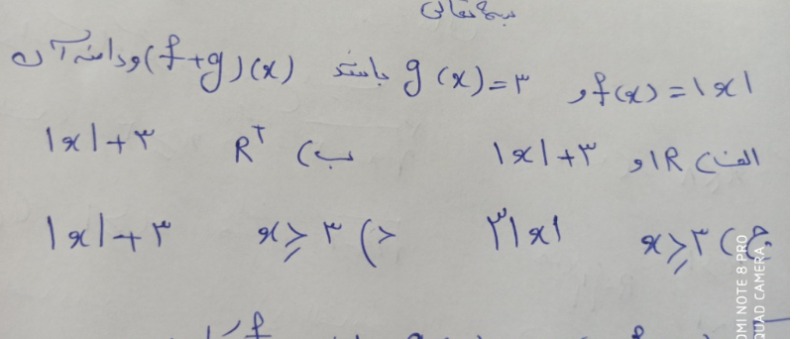 بسمه تعالی
f(x)=|x| و g(x)=۳ باشد (f+g)(x) و دامنه آن
الف) IR و |x|+۳ ب) R⁺ |x|+۳
ج) x≤۳ ۳|x| د) x≥۳ |x|+۳
OMI NOTE 8 PRO
QUAD CAMERA